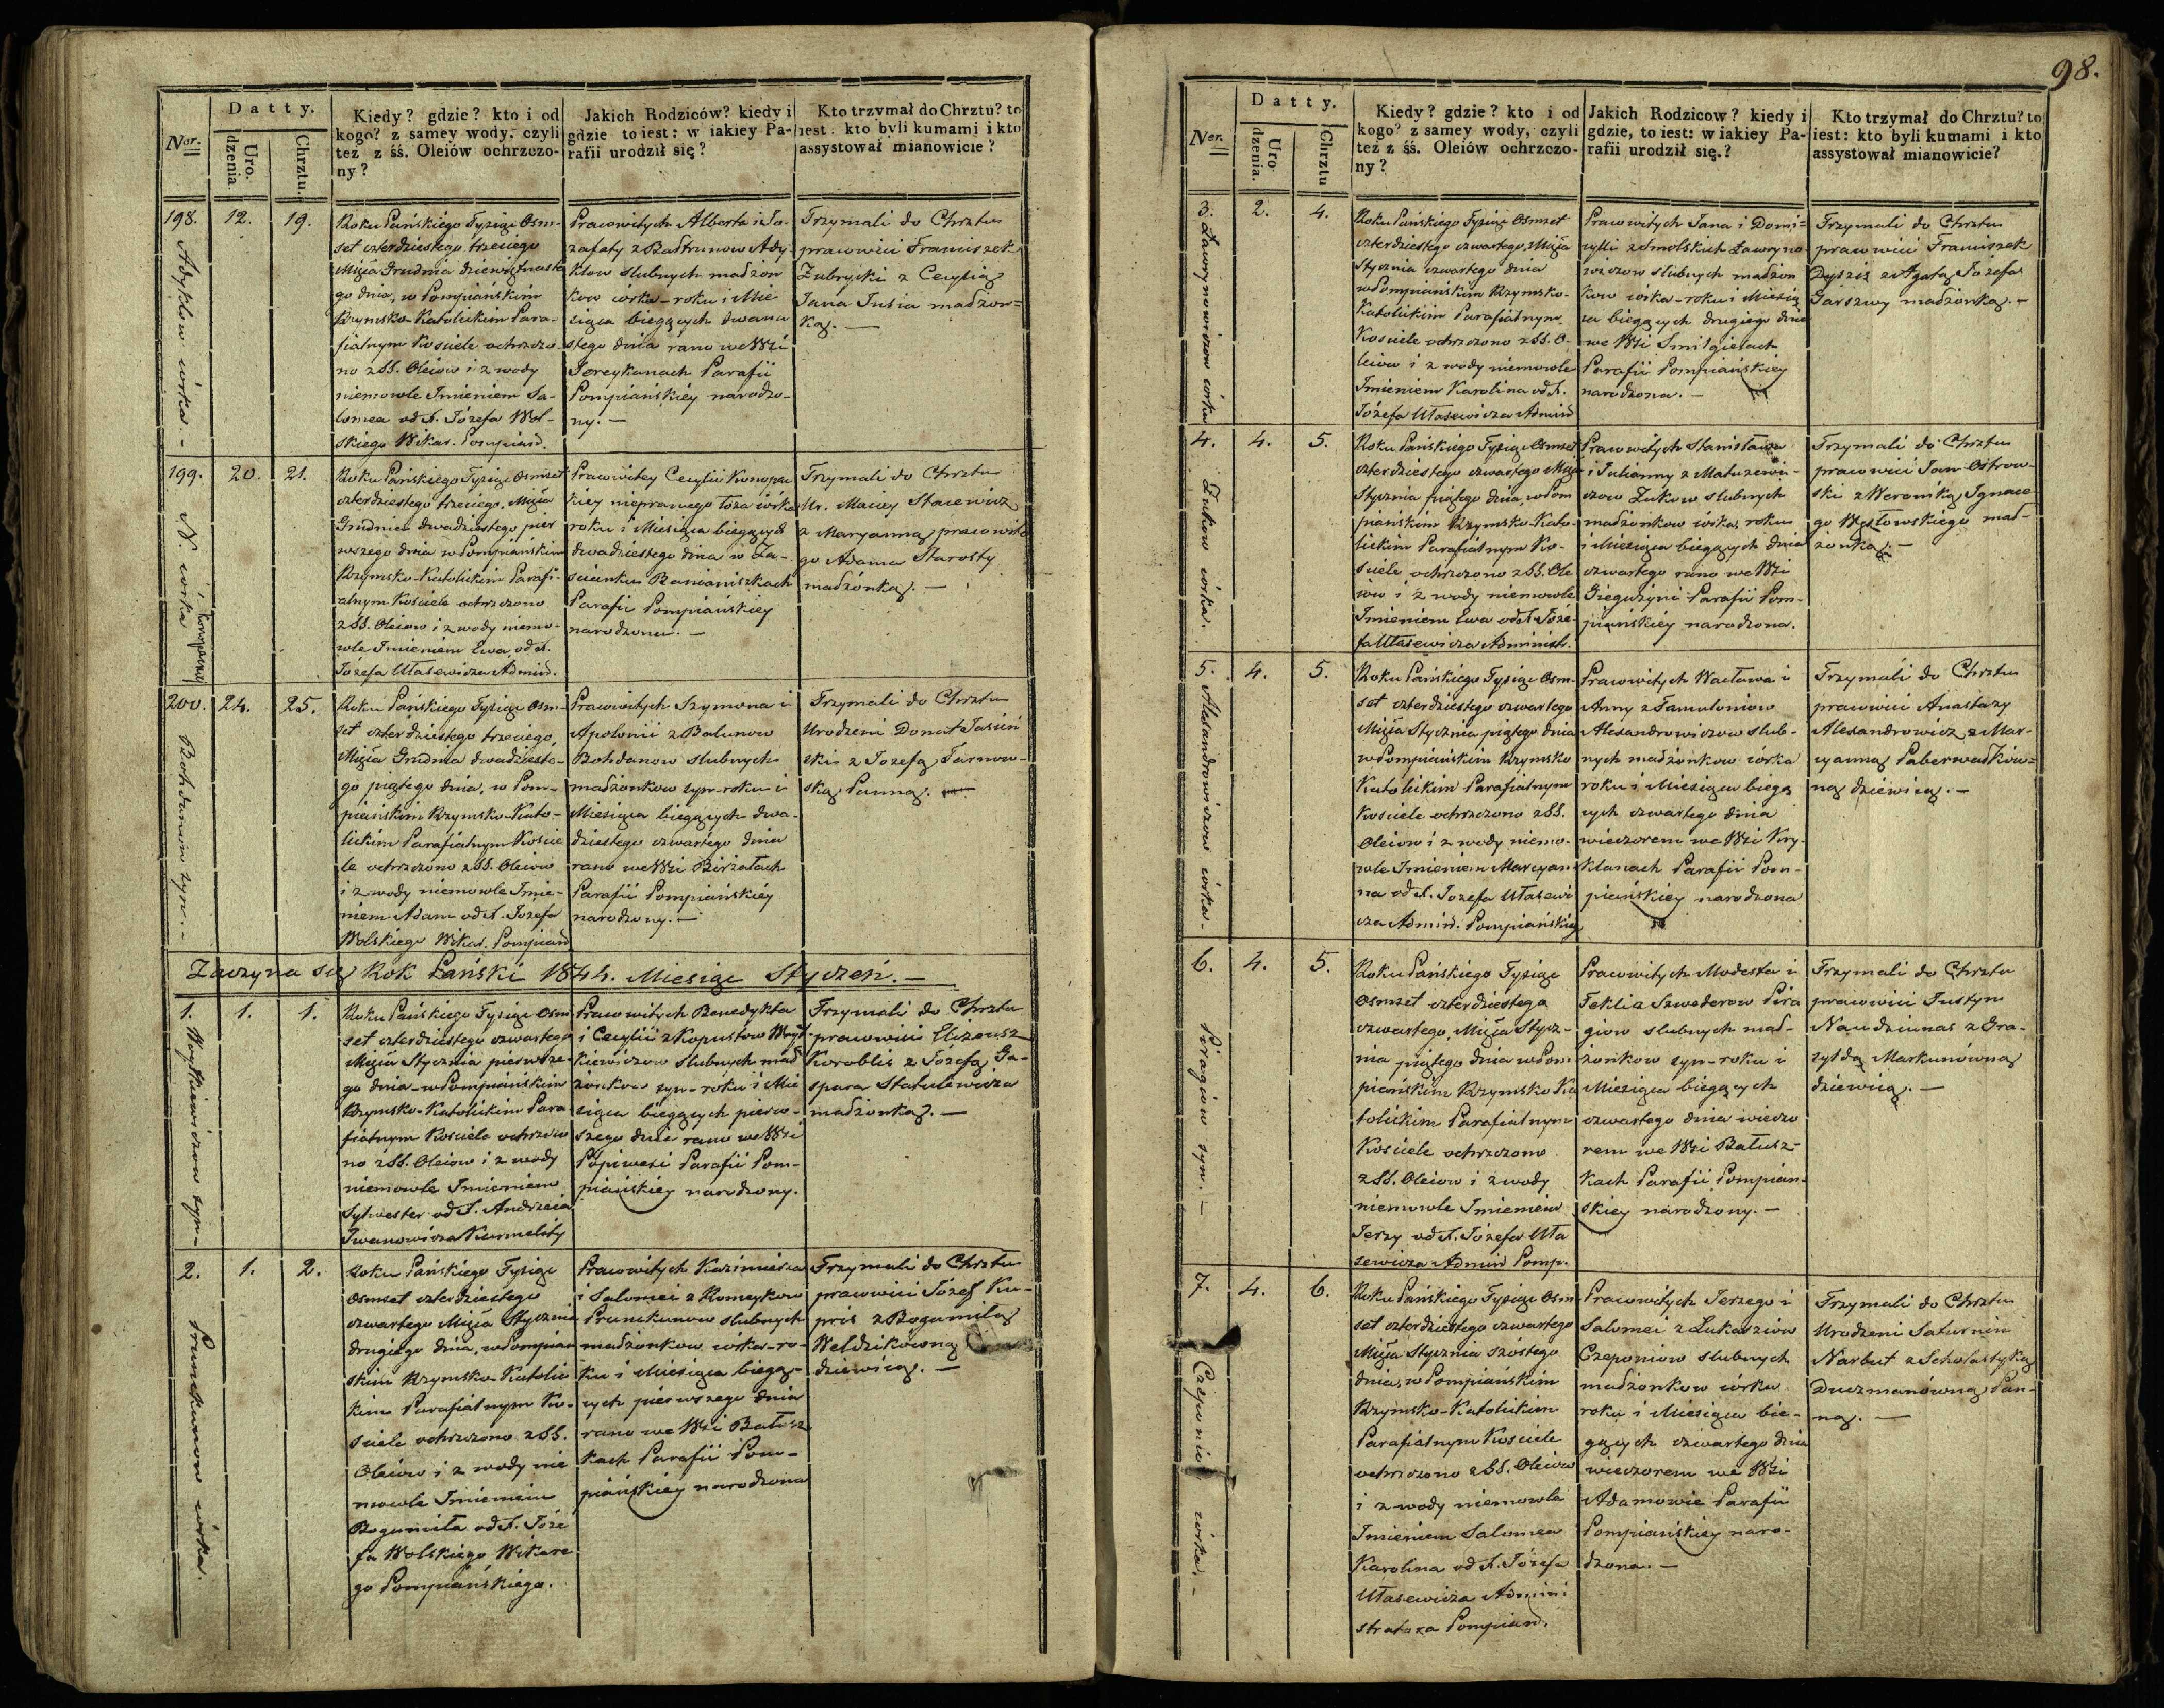 98.
Nar.
Datty.
Uro. dzenia.
Chrztu.
Kiedy? gdzie? kto i od
kogo? z samey wody, czyli
tez z śś. Oleiów ochrzczo-
ny?
Jakich Rodziców? kiedy i
gdzie to iest: w iakiey Pa-
rafii urodził się?
Kto trzymał do Chrztu? to
iest: kto byli kumami i kto
assystował mianowicie?
198.
Adyklow córka.-
12.
19.
Roku Pańskiego Tysiąc Osm-
set czterdziestego trzeciego
Mięsia Grudnia dziewiętnaste
go dnia, w Pompiańskim
Rzymsko-Katolickim Para-
fialnym Kosciele ochrzczo
no z SS. Oleiow i z wody
niemowle Imieniem Sa-
lomea od X. Józefa Wol-
skiego Wikar. Pompiań.
Pracowitych Alberta i Jo-
zafaty z Bałtrunow Ady-
klow slubnych małżon
kow córka-roku i Mie
siąca bieggcych dwana
stego dnia rano we Wsi
Jereykanach Parafii
Pompiańskiéy narodzo-
ny.-
Trzymali do Chrztu
pracowici Franciszek
Zubrycki z Cecylią
Jana Jusia małżon=
ką.-
199.
N. córka Konopacki
20.
21.
Roku Pańskiego Tysiąc Osmset
czterdziestego trzeciego, Mięsia
Grudnia dwadziestego pier
wszego dnia w Pompiańskim
Rzymsko-Katolickim Parafi-
alnym Kosciele ochrzczono
z SS. Oleiow i z wody niemo-
wle Imieniem Ewa, od X.
Józefa Ułasewicza Admin.
Pracowitey Cecylii Konopac
kiey nieprawego łoża córka
roku i Miesiąca biegących
dwadziestego dnia w Za-
scianku Baniuniszkach
Parafii Pompiańskiéy
narodzona.-
Trzymali do Chrztu
Ur. Maciey Stacewicz
z Maryanną pracowite
go Adama Starosty
małżónką.-
200.
Bohdanow syn.-
24.
25.
Roku Pańskiego Tysiąc Osm-
set czterdziestego trzeciego,
Mięsia Grudnia dwadzieste-
go piątego dnia, w Pom-
piańskim Rzymsko-Kato-
lickim Parafialnym Koscie
le ochrzczono z SS. Oleiow
i z wody niemowle Imie-
niem Adam od X. Jozefa
Wolskiego Wikar. Pompiań
Pracowitych Szymona i
Apolonii z Balunow
Bohdanow slubnych
małżonkow syn-roku i
Miesiąca biegących dwa-
dziestego czwartego dnia
rano we Wsi Birżałach
Parafii Pompiańskiéy
narodzony.-
Trzymali do Chrztu
Urodzeni Donat Jasień
ski z Jozefą Tarnow-
ską Panną.
Zaczyna się Rok Pański 1844. Miesiąc Styczeń.-
1.
Woytkiewiczow syn-
1.
1.
Roku Pańskiego Tysiąc Osm
set czterdziestego czwartego
Mięsia Stycznia pierwsze-
go dnia-w Pompiańskim
Rzymsko-Katolickim Para
fialnym Kosciele ochrzczo
no z SS. Oleiow i z wody
niemowle Imieniem
Sylwester od X. Andrzeia
Iwanowicza Karmelity
Pracowitych Benedykta
i Cecylii z Kopustow Woyt
kiewiczow slubnych mał
żonkow syn-roku i Mie
siąca biegących pierw-
szego dnia rano we Wsi
Popiwesi Parafii Pom-
piańskiey narodzony.
Trzymali do Chrztu
pracowici Elzeusz
Koroblis z Józefą Ga-
spara Statulewicza
małżonką.-
2.
Prunckunow córka.
1.
2.
Roku Pańskiego Tysiąc
Osmset czterdziestego
czwartego Mięsia Stycznia
drugiego dnia, w Pompiań
skim Rzymsko Katolic
kim Parafialnym Ko-
sciele ochrzczono z SS.
Oleiow i z wody nie
mowle Imieniem
Bogumiła od X. Józe
fa Wolskiego Wikare
go Pompiańskiego.
Pracowitych Kazimierza
i Salomei z Romeykow
Prunckunow slubnych
małżonkow córka-ro-
ku i Miesiąca biegą-
cych pierwszego dnia
rano we Wsi Batusz
kach Parafii Pom-
piańskiéy narodzona
Trzymali do Chrztu
pracowici Józef Ku-
pris z Bogumiłą
Weldzikowną
dziewicą.-
Ner.
Datty.
Uro dzenia.
Chrztu
Kiedy? gdzie? kto i od
kogo? z samey wody, czyli
też z śś. Oleiów ochrzczo-
ny?
Jakich Rodzicow? kiedy i
gdzie, to iest: w iakiey Pa-
rafii urodził się.?
Kto trzymał do Chrztu? to
iest: kto byli kumami i kto
assystował mianowicie?
3.
Ławrynowiczow córka
2.
4.
Roku Pańskiego Tysiąc Osmset
czterdziestego czwartego, Mięsia
Stycznia czwartego dnia
w Pompiańskim Rzymsko-
Katolickim Parafialnym
Kosciele ochrzczono z SS. O-
leiow i z wody niemowle
Imieniem Karolina od X.
Józefa Ułasewicza Admin
Pracowitych Jana i Domi=
cylli z Smolskich Ławryno
wiczow slubnych małżon
kow córka-roku i Miesią
ca biegących drugiego dnia
we Wsi Smilgielach
Parafii Pompiańskiey
narodzona.-
Trzymali do Chrztu
pracowici Franciszek
Dyszis z Agatą Józefa
Garszwy małżonką.-
4.
Zukow córka.
4.
5.
Roku Pańskiego Tysiąc Osmset
czterdziestego czwartego Mięsia
Stycznia piątego dnia, w Pom
piańskim Rzymsko-Kato-
lickim Parafialnym Ko-
sciele ochrzczono z SS. Ole
iow i z wody niemowle
Imieniem Ewa od X. Józe-
fa Ułasewicza Administ.
Pracowitych Stanisława
i Julianny z Matuzewi-
czow Zukow slubnych
małżonkow córka, roku
i Miesiąca biegących dnia
czwartego rano we Wsi
Gieguzyni Parafii Pom-
piańskiéy narodzona.
Trzymali do Chrztu
pracowici Jan Ostrow-
ski z Weroniką Ignace
go Węsłowskiego mał-
żonką.-
5.
Alexandrowiczow córka-
4.
5.
Roku Pańskiego Tysiąc Osm-
set czterdziestego czwartego
Mięsia Stycznia piątego dnia
w Pompiańskim Rzymsko
Katolickim Parafialnym
Kosciele ochrzczono z SS.
Oleiow i z wody niemo-
wle Imieniem Maryan-
na od X. Jozefa Ułasewi
cza Admin. Pompiańskieg
Pracowitych Wacława i
Anny z Tamuloniow
Alexandrowiczow slub-
nych małżónkow córka
roku i Miesiąca biegą
cych czwartego dnia
wieczorem we Wsi Kry-
klanach Parafii Pom-
piańskiéy narodzona
Trzymali do Chrztu
pracowici Anastazy
Alexandrowicz z Mar-
yanną Paberwadków=
ną dziewicą.-
6.
Piragiow syn.-
4.
5.
Roku Pańskiego Tysiąc
Osmset czterdziestego
czwartego, Mięsia Stycz-
nia piątego dnia w Pom
piańskim Rzymsko Ka
tolickim Parafialnym
Kosciele ochrzczono
z SS. Oleiow i z wody
niemowle Imieniem
Jerzy od X. Józefa Uła
sewicza Admin Pomp.
Pracowitych Modesta i
Tekli z Szwederow Pira
giow slubnych mał-
żonkow syn-roku i
Miesiąca biegących
czwartego dnia wieczo
rem we Wsi Batusz-
kach Parafii Pompiań-
skiey narodzony.-
Trzymali do Chrztu
pracowici Justyn
Naudziunas z Gra-
syldą Markunówną
dziewicą.-
7.
Czeponiow córka.-
4.
6.
Roku Pańskiego Tysiąc Osm-
set czterdziestego czwartego
Mięsia Stycznia szóstego
dnia, w Pompiańskim
Rzymsko-Katolickim
Parafialnym Kosciele
ochrzczono z SS. Oleiow
i z wody niemowle
Imieniem Salomea
Karolina od X. Józefa
Ułasewicza Admini
stratora Pompiań.
Pracowitych Jerzego i
Salomei z Łukasziow
Czeponiow slubnych
małżonkow córka
roku i Miesiąca bie-
gących czwartego dnia
wieczorem we Wsi
Adamowie Parafii
Pompiańskiey naro-
dzona.-
Trzymali do Chrztu
Urodzeni Saturnin
Narbut z Scholastyką
Duczmanówną Pan-
ną.-